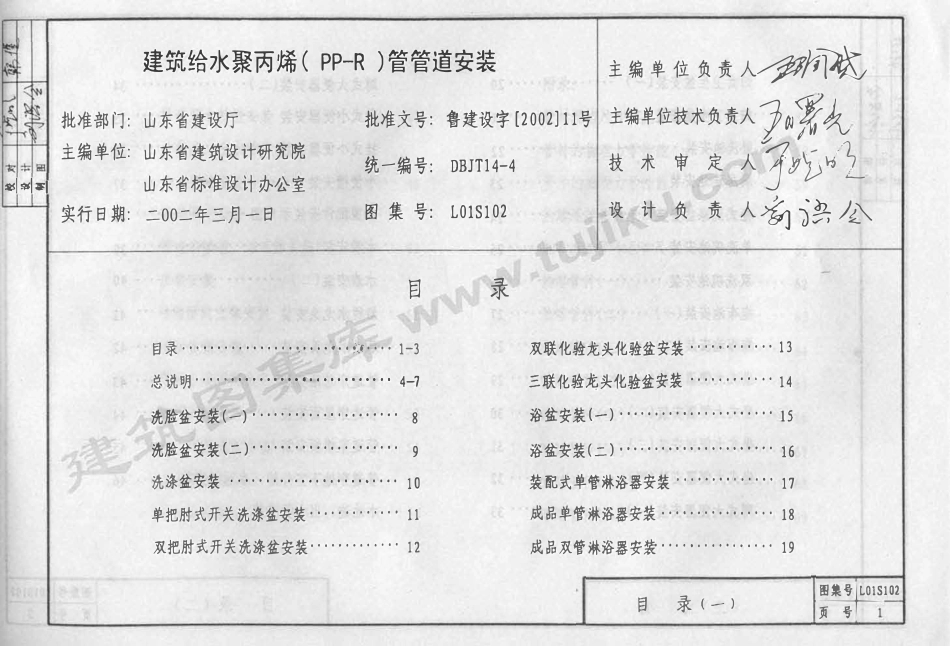 建筑给水聚丙烯( PP-R )管管道安装
批准部门: 山东省建设厅
批准文号: 鲁建设字[2002]11号
主编单位: 山东省建筑设计研究院
山东省标准设计办公室
统一编号: DBJT14-4
实行日期: 二00二年三月一日
图集号: L01S102
主编单位负责人
主编单位技术负责人
技术审定人
设计负责人
校对
设计
制图
目 录
目录 1-3
总说明 4-7
洗脸盆安装(一) 8
洗脸盆安装(二) 9
洗涤盆安装 10
单把肘式开关洗涤盆安装 11
双把肘式开关洗涤盆安装 12
双联化验龙头化验盆安装 13
三联化验龙头化验盆安装 14
浴盆安装(一) 15
浴盆安装(二) 16
装配式单管淋浴器安装 17
成品单管淋浴器安装 18
成品双管淋浴器安装 19
目 录(一)
图集号 L01S102
页 号 1
建筑图集库 www.tujiku.com